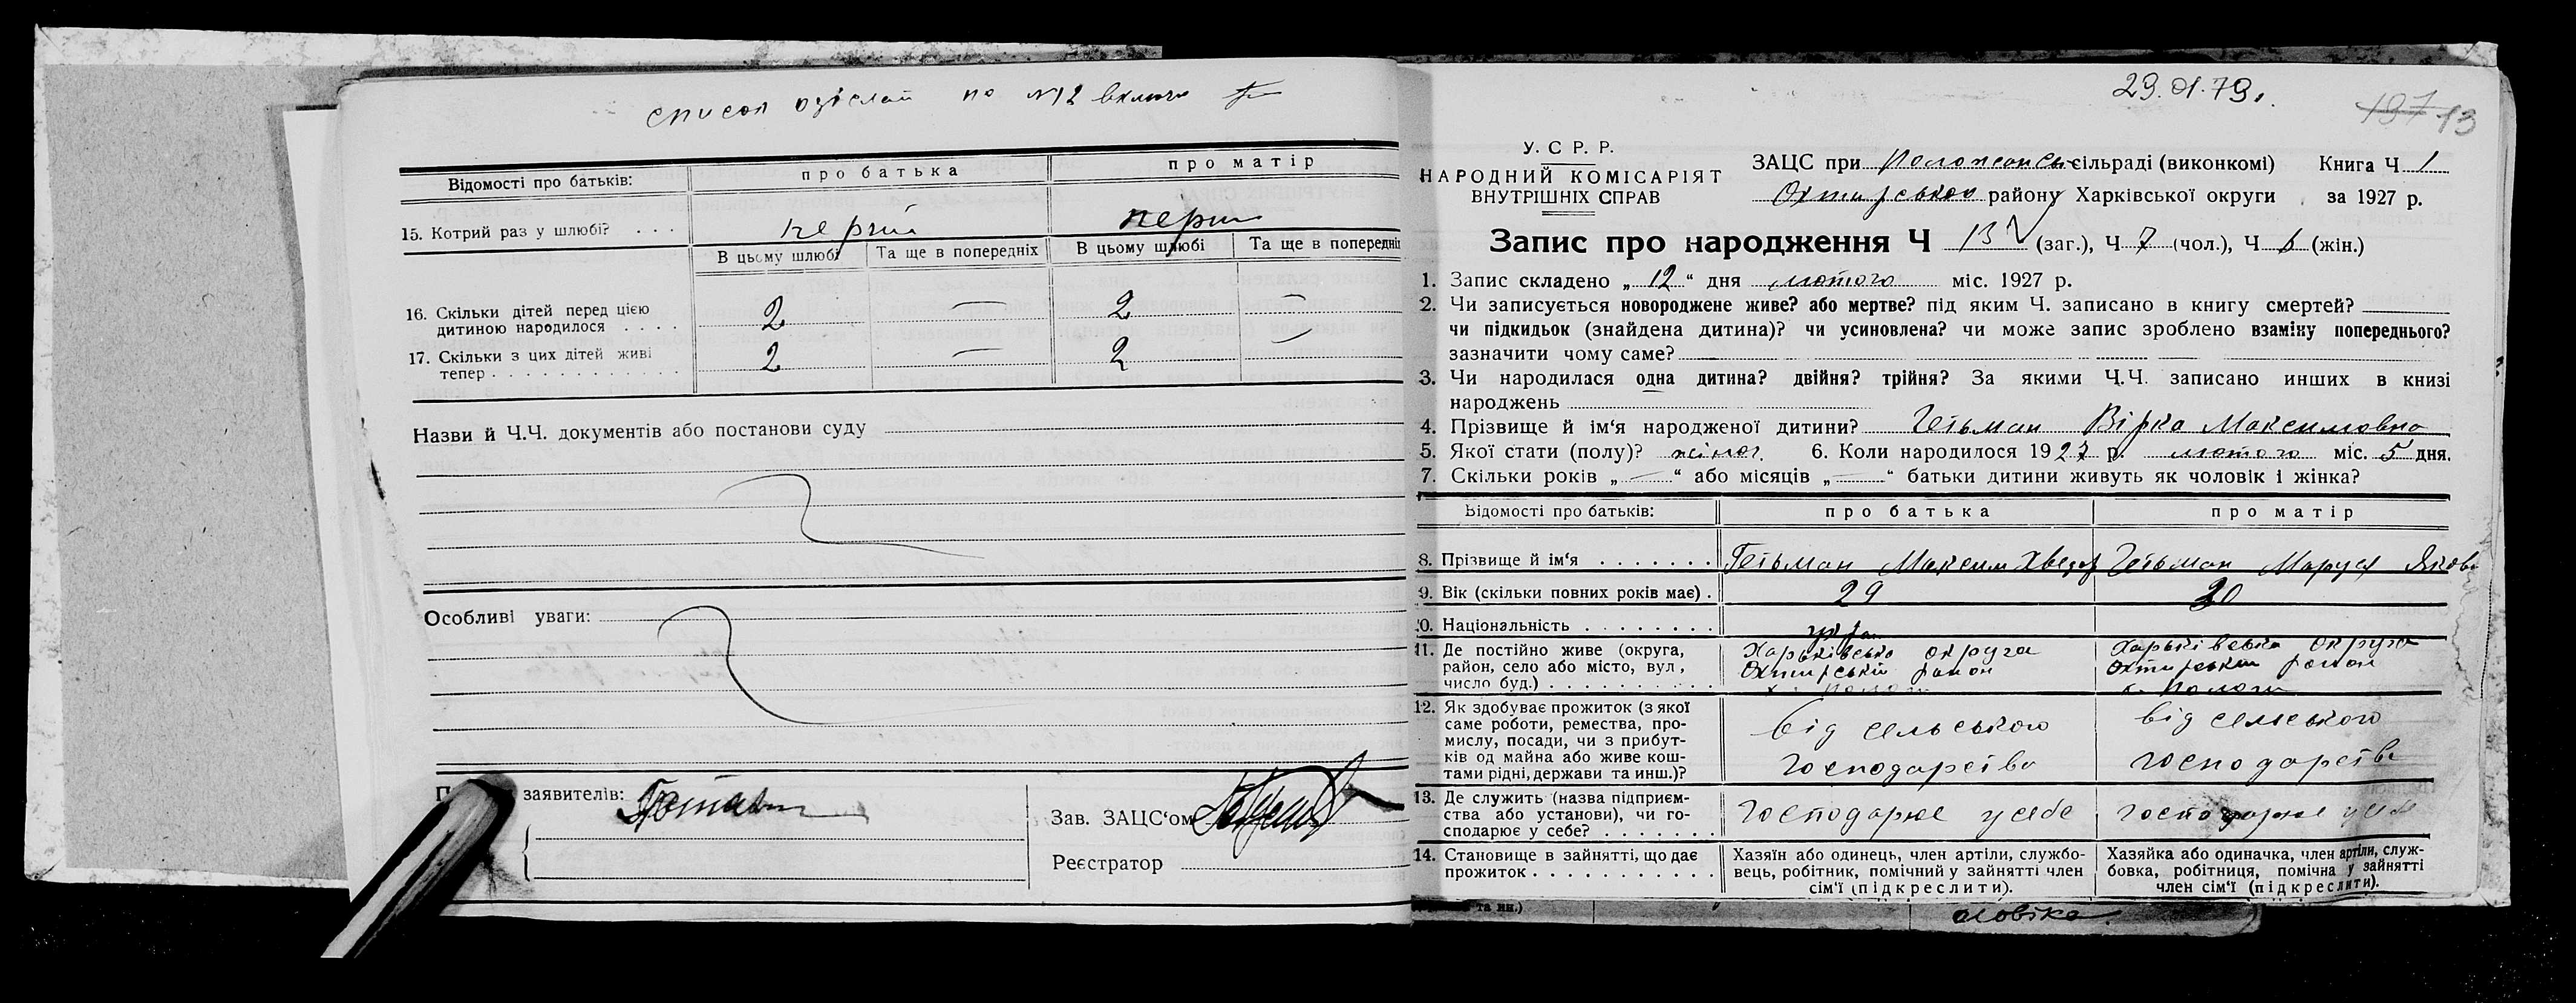 список по №12 включ
Відомості про батьків: про батька про матір
15. Котрий раз у шлюбі? . . . перший перш
В цьому шлюбі Та ще в попередніх В цьому шлюбі Та ще в попередніх
16. Скільки дітей перед цією
дитиною народилося . . . . 2 — 2 —
17. Скільки з цих дітей живі
тепер . . . . . . . . . . . . . 2 — 2 —
Назви й Ч.Ч. документів або постанови суду
Особливі уваги:
заявителів:
Зав. ЗАЦС‘ом
Реєстратор
29.01.79.
197 13
У. С. Р. Р.
НАРОДНИЙ КОМІСАРІЯТ
ВНУТРІШНІХ СПРАВ
ЗАЦС при сільраді (виконкомі) Книга Ч 1
Охтирського району Харківської округи за 1927 р.
Запис про народження Ч 13 (заг.), Ч 7 (чол.), Ч 6 (жін.)
1. Запис складено „ 12 “ дня лютого міс. 1927 р.
2. Чи записується новороджене живе? або мертве? під яким Ч. записано в книгу смертей?
чи підкидьок (знайдена дитина)? чи усиновлена? чи може запис зроблено взаміну попереднього?
зазначити чому саме?
3. Чи народилася одна дитина? двійня? трійня? За якими Ч.Ч. записано инших в книзі
народжень
4. Прізвище й ім‘я народженої дитини? Гетьман Вірка Максимовна
5. Якої стати (полу)? жіноч. 6. Коли народилося 1927 р. лютого міс. 5 дня.
7. Скільки років „ — “ або місяців „ — “ батьки дитини живуть як чоловік і жінка?
Відомості про батьків: про батька про матір
8. Прізвище й ім‘я . . . . . . . Гетьман Максим Хведор Гетьман Маруся Яков
9. Вік (скільки повних років має) . 29 30
10. Національність . . . . . . . . укр
11. Де постійно живе (округа,
район, село або місто, вул,
число буд.) . . . . . . . . . .
Харьківська округа
Охтирський район
Харьківська округа
Охтирський район
12. Як здобуває прожиток (з якої
саме роботи, ремества, про-
мислу, посади, чи з прибут-
ків од майна або живе кош-
тами рідні, держави та инш.)?
від сельського
господарства
від сельського
господарства
13. Де служить (назва підприєм-
ства або установи), чи го-
сподарює у себе? . . . . . . .
господарює у себе
господарює у себ
14. Становище в зайнятті, що дає
прожиток . . . . . . . . . . . .
Хазяїн або одинець, член артіли, службо-
вець, робітник, помічний у зайнятті член
сім‘ї (підкреслити).
Хазяйка або одиначка, член артіли, служ-
бовка, робітниця, помічна у зайнятті
член сім‘ї (підкреслити).
та ин.)